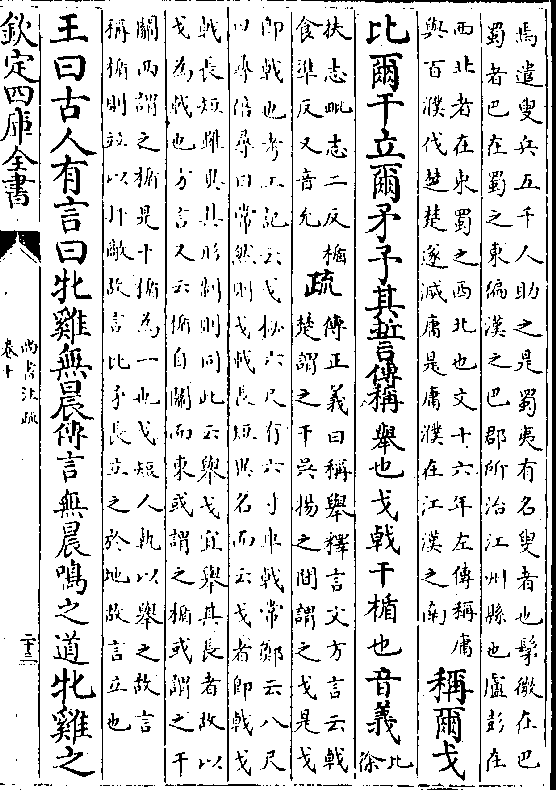 焉遣叟兵五千人助之是蜀夷有名叟者也髳微在巴
蜀者巴在蜀之東偏漢之巴郡所治江州縣也盧彭在
西北者在東蜀之西北也文十六年左傳稱庸
與百濮伐楚楚遂滅庸是庸濮在江漢之南
稱爾戈
比爾干立爾矛予其誓傳稱舉也戈戟干楯也音義
比徐
扶志毗志二反楯
食準反又音允
疏
傳正義曰稱舉釋言文方言云戟
楚謂之干吳揚之間謂之戈是戈
即戟也考工記云戈柲六尺有六寸車戟常鄭云八尺
曰尋倍尋曰常然則戈戟長短異名而云戈者即戟戈
戟長短雖異其形制則同此云舉戈宜舉其長者故以
戈為戟也方言又云楯自關而東或謂之楯或謂之干
關西謂之楯是干楯為一也戈短人執以舉之故言
稱楯則竝以扞敵故言比矛長立之於地故言立也
王曰古人有言曰牝雞無晨傳言無晨鳴之道牝雞之
欽定四庫全書
尚書注疏
卷十
二十三